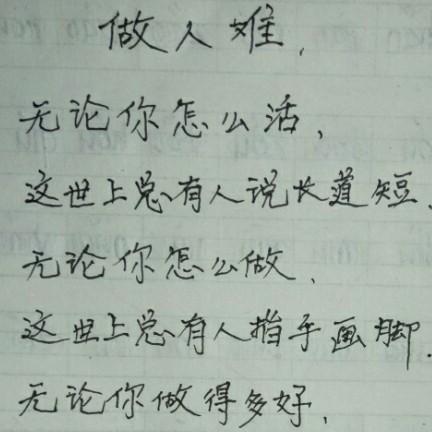 做人难，
无论你怎么活，
这世上总有人说长道短，
无论你怎么做，
这世上总有人指手画脚，
无论你做得多好，